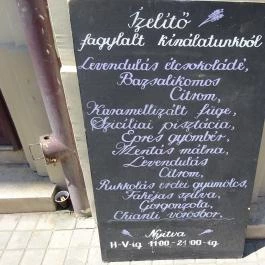 Ízelítő
fagylalt kínálatunkból
Levendulás étcsokoládé,
Bazsalikomos
Citrom,
Karamellizált füge,
Szicíliai pisztácia,
Epres gyömbér,
Mentás málna,
Levendulás
Citrom,
Rukkolás erdei gyümölcs,
Fahéjas szilva,
Gorgonzola,
Chianti vörösbor.
Nyitva
H-V-ig 11:00-21:00-ig